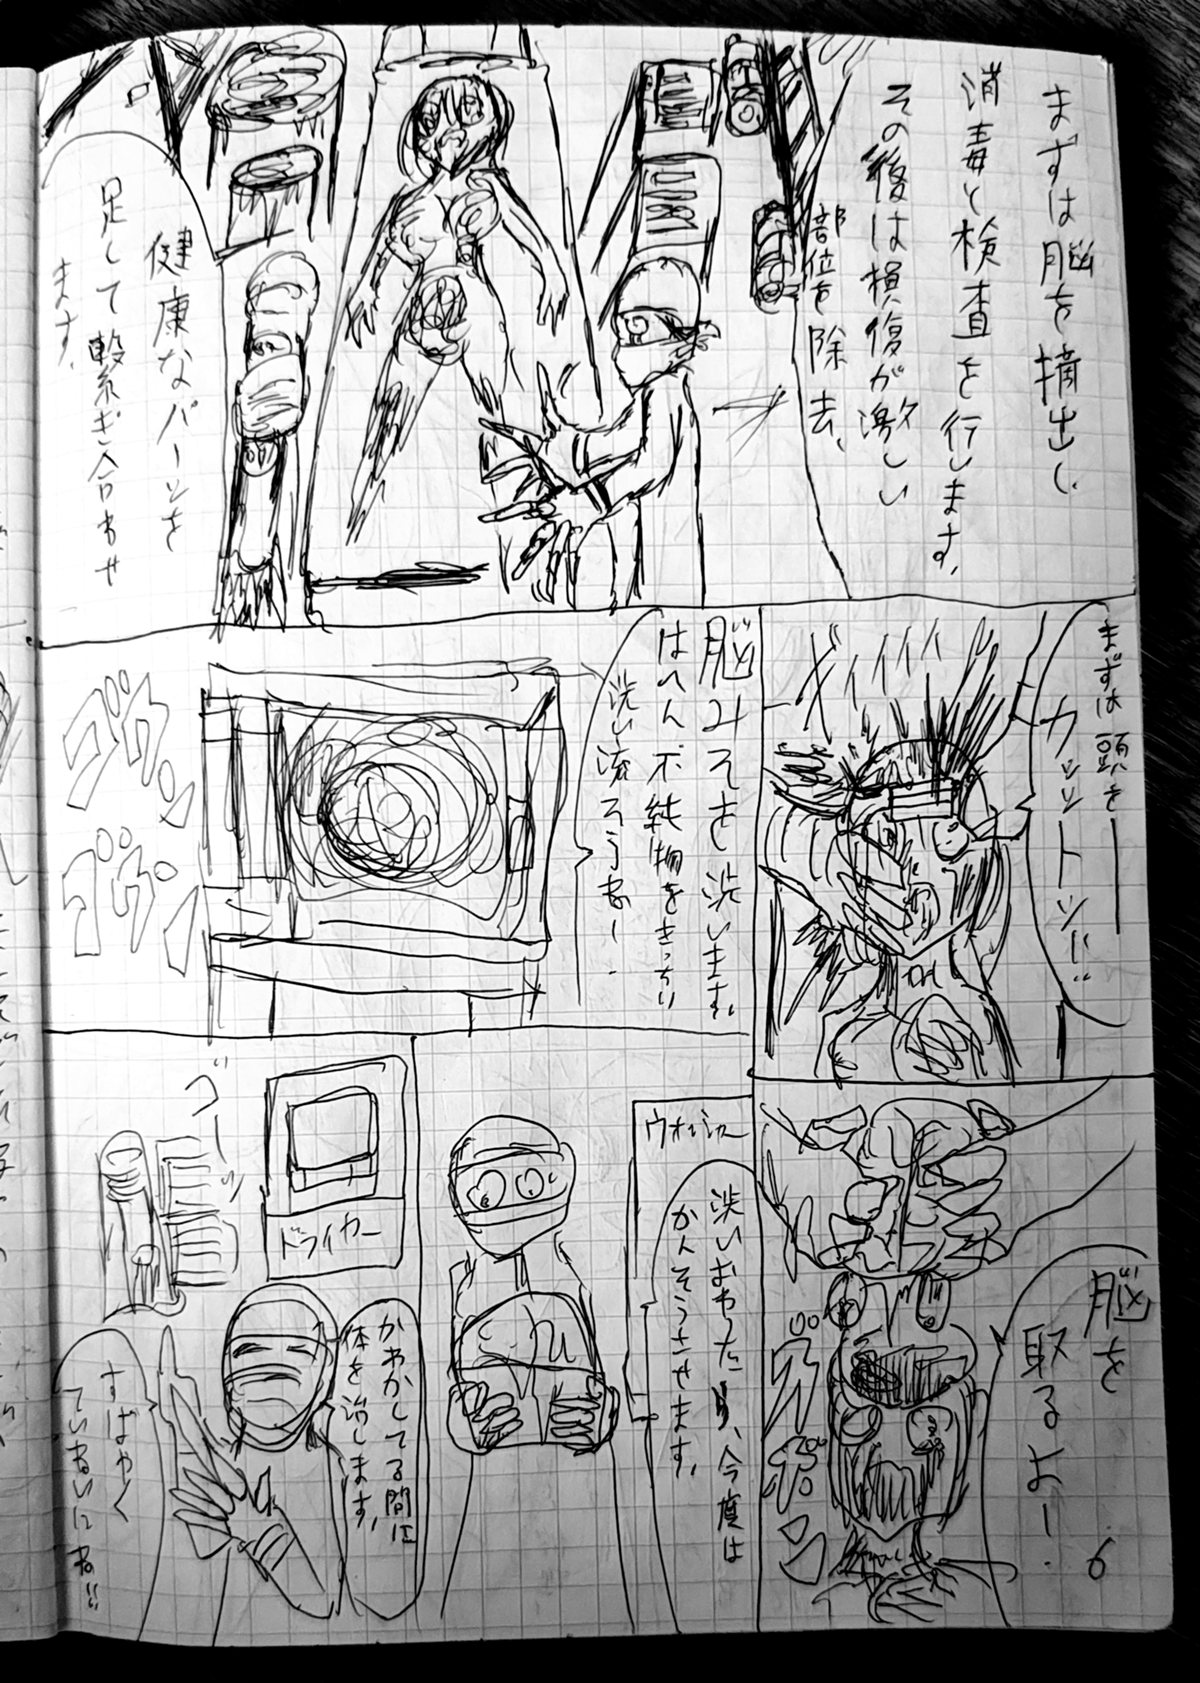 まずは脳を摘出し
消毒と検査を行います。
その後は損傷が激しい
部位を除去、
健康なパーツを
足して繋ぎ合わせ
ます。
まずは頭をーー
カッットッ!!
ギィィィィ
脳を
取るよー
脳みそを洗います。
不純物をきっちり
洗い流ろうねー
ゴウン
ゴウン
ウォッシャー
洗いおわったり、今度は
かんそうさせます。
ドライヤー
ゴーッ
かわかしてる間に
体を治します。
すばやく
ていねいにね!!
6